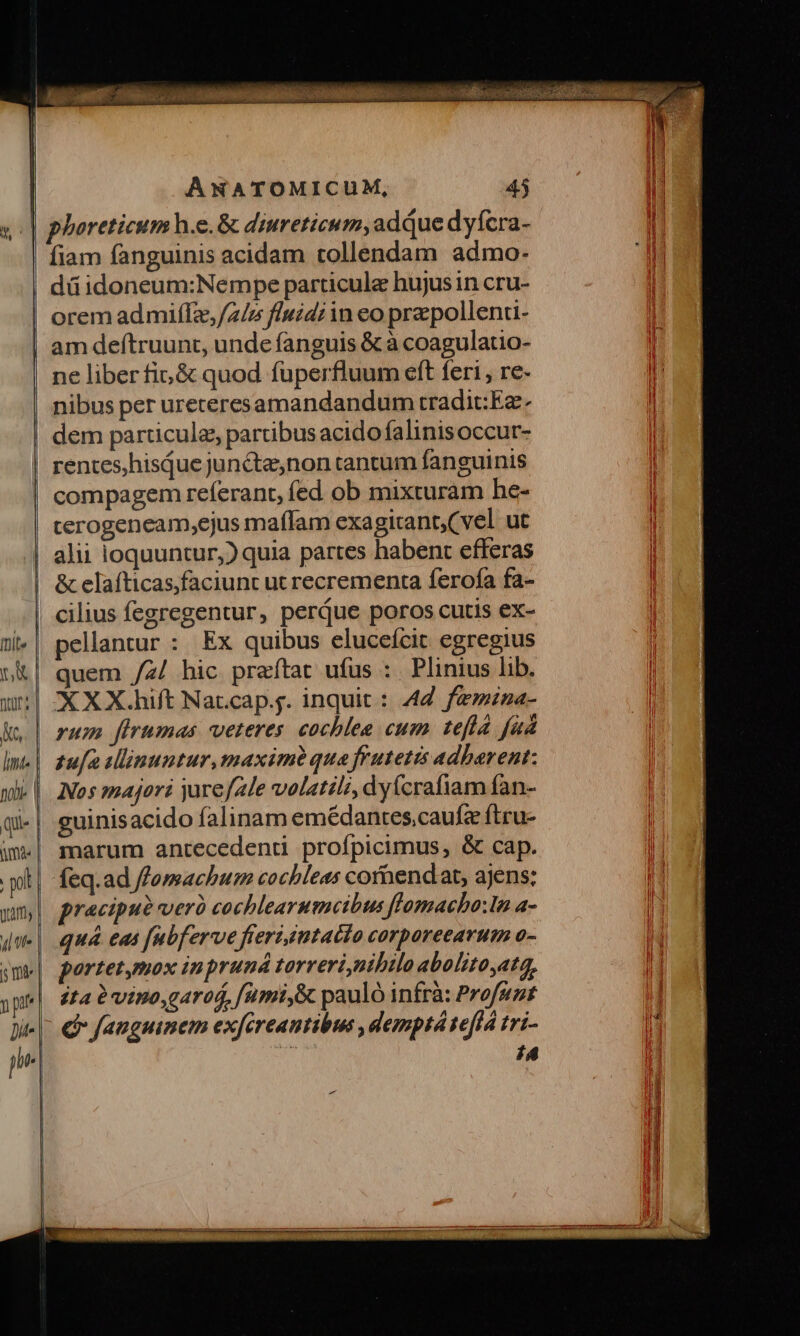 ANATOMICUM, 45
phoreticum h.e. & diureticum, adq́ue dyſcra-
ſiam ſanguinis acidam tollendam admo-
dū idoneum: Nempe particulæ hujus in cru-
orem admiſſæ, ſalis fluidi in eo præpollenti-
am deſtruunt, unde ſanguis & à coagulatio-
ne liber fit, & quod ſuperfluum eſt ſeri, re-
nibus per ureteres amandandum tradit: Eæ-
dem particulæ, partibus acido ſalinis occur-
rentes, hisq́ue junctæ, non tantum ſanguinis
compagem referant, ſed ob mixturam he-
terogeneam, ejus maſſam exagitant, (vel ut
alii loquuntur,) quia partes habent efferas
& elaſticas, faciunt ut recrementa ſeroſa fa-
cilius ſegregentur, perq́ue poros cutis ex-
pellantur : Ex quibus eluceſcit egregius
quem ſal hic præſtat uſus : Plinius lib.
XXX. hiſt Nat. cap. 5. inquit : Ad fæmina-
rum ſtrumas veteres cochleæ cum teſtâ ſuâ
tuſæ illinuntur, maximè quæ frutetis adhærent:
Nos majori jure ſale volatili, dyſcraſiam ſan-
guinis acido ſalinam emēdantes, cauſæ ſtru-
marum antecedenti proſpicimus, & cap.
ſeq. ad ſtomachum cochleas com̄endat, ajens:
præcipuè verò cochlearum cibus ſtomacho: In a-
quâ eas ſubferve fieri, intacto corpore earum o-
portet, mox in prunâ torreri, nihilo abolito, atq́,
ita è vino, garoq́, ſumi, & paulò infrà: Proſunt
& ſanguinem exſcreantibus, demptâ teſtâ tri-
ta